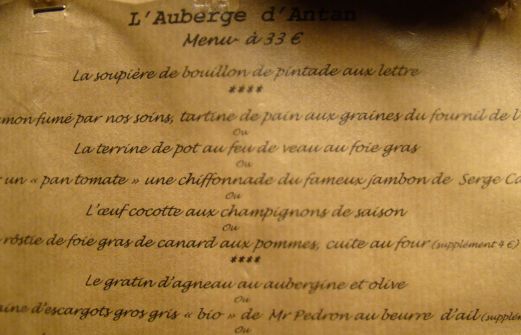 L'Auberge d'Antan
Menu à 33 €
La soupière de bouillon de pintade aux lettre
****
mon fumé par nos soins, tartine de pain aux graines du fournil de l
Ou
La terrine de pot au feu de veau au foie gras
Ou
un « pan tomate » une chiffonnade du fameux jambon de Serge Ca
Ou
L'œuf cocotte aux champignons de saison
Ou
rôstie de foie gras de canard aux pommes, cuite au four (supplément 4 €)
****
Le gratin d'agneau au aubergine et olive
Ou
aine d'escargots gros gris « bio » de Mr Pedron au beurre d'ail (supplém
Ou